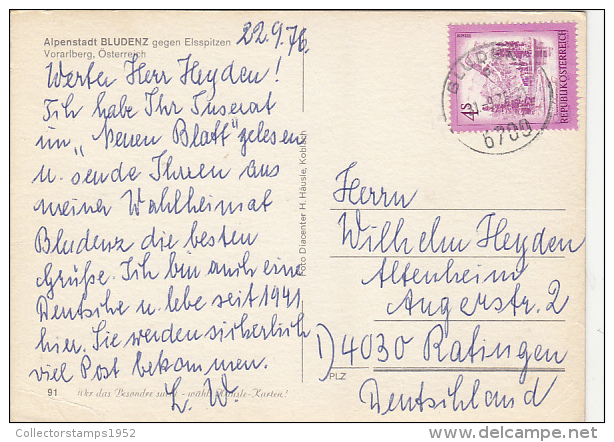 Alpenstadt BLUDENZ gegen Elsspitzen
Vorarlberg, Österreich
22.9.76.
Werter Herr Heyden!
Ich habe Ihr Inserat
im „Neuen Blatt" gelesen
u. sende Ihnen aus
meiner Wahlheimat
Bludenz die besten
Grüße. Ich bin auch eine
Deutsche u. lebe seit 1941
hier. Sie werden sicherlich
viel Post bekommen.
L. W.
91
Wer das Besondre sucht - wählt Häusle-Karten!
Foto Diacenter H. Häusle, Koblach
4S
REPUBLIK ÖSTERREICH
6700
Herrn
Wilhelm Heyden
Altenheim
Angerstr. 2
D) 4030 Ratingen
PLZ
Deutschland
Collectorstamps1952
www.delcampe.net